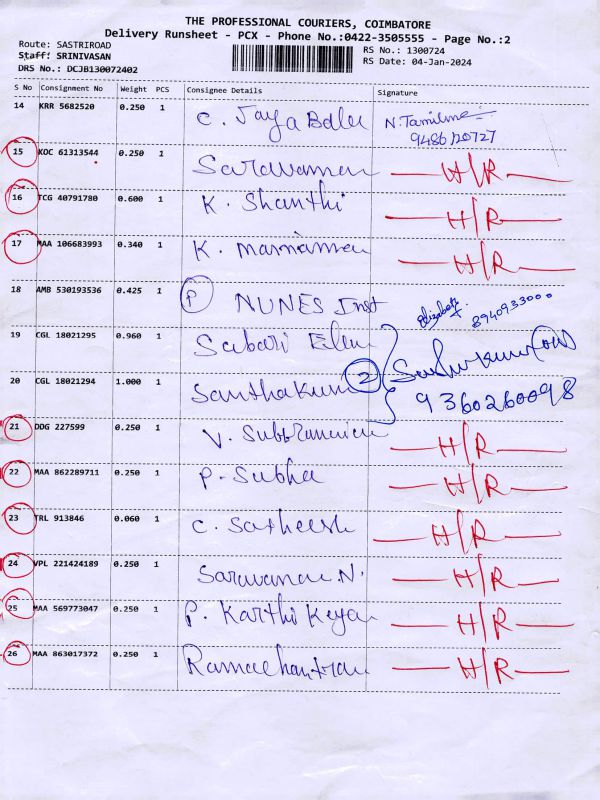 THE PROFESSIONAL COURIERS, COIMBATORE
Delivery Runsheet - PCX - Phone No.:0422-3505555 - Page No.:2
Route: SASTRIROAD RS No.: 1300724
Staff: SRINIVASAN RS Date: 04-Jan-2024
DRS No.: DCJB130072402
S No Consignment No Weight PCS Consignee Details Signature
14 KRR 5682520 0.250 1 C. Jaya Balu N. Tamilma
9486120727
15 KOC 61313544 0.250 1 Saravanan H/R
16 TCG 40791780 0.600 1 K. Shanthi H/R
17 MAA 106683993 0.340 1 K. H/R
18 AMB 530193536 0.425 1 P NUNES Inst Elizabeth
8940933000
19 CGL 18021295 0.960 1 Sabari
20 CGL 18021294 1.000 1 Santhakum 2
9360260098
21 DDG 227599 0.250 1 V. H/R
22 MAA 862289711 0.250 1 P. Subha H/R
23 TRL 913846 0.060 1 C. Satheesh H/R
24 VPL 221424189 0.250 1 Saravanan N. H/R
25 MAA 569773047 0.250 1 P. Karthi Keyan H/R
26 MAA 863017372 0.250 1 Ramachantran H/R